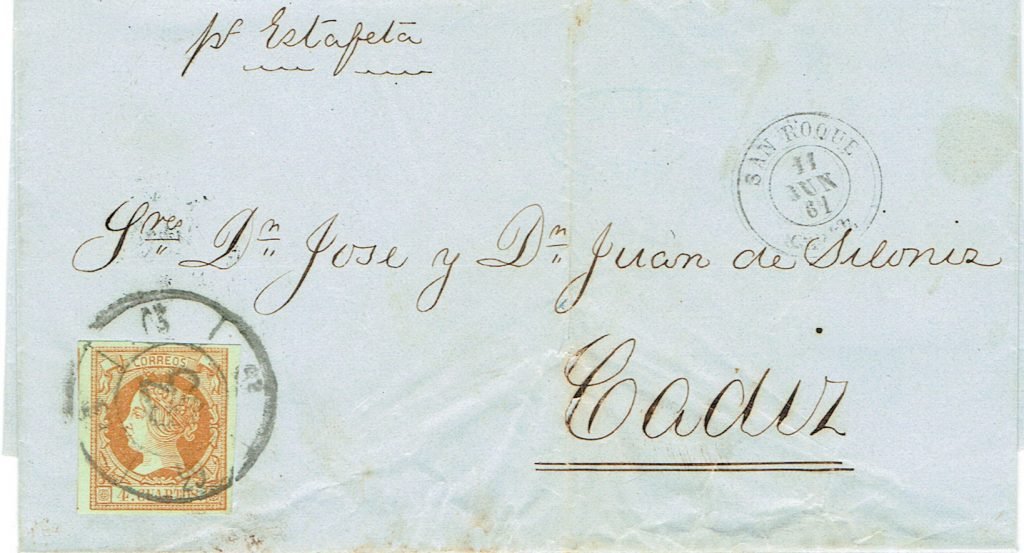 pr Estafeta
SAN ROQUE
11
JUN
61
Sres Dn Jose y Dn Juan de Siloniz
Cadiz
CORREOS
4 CUARTOS